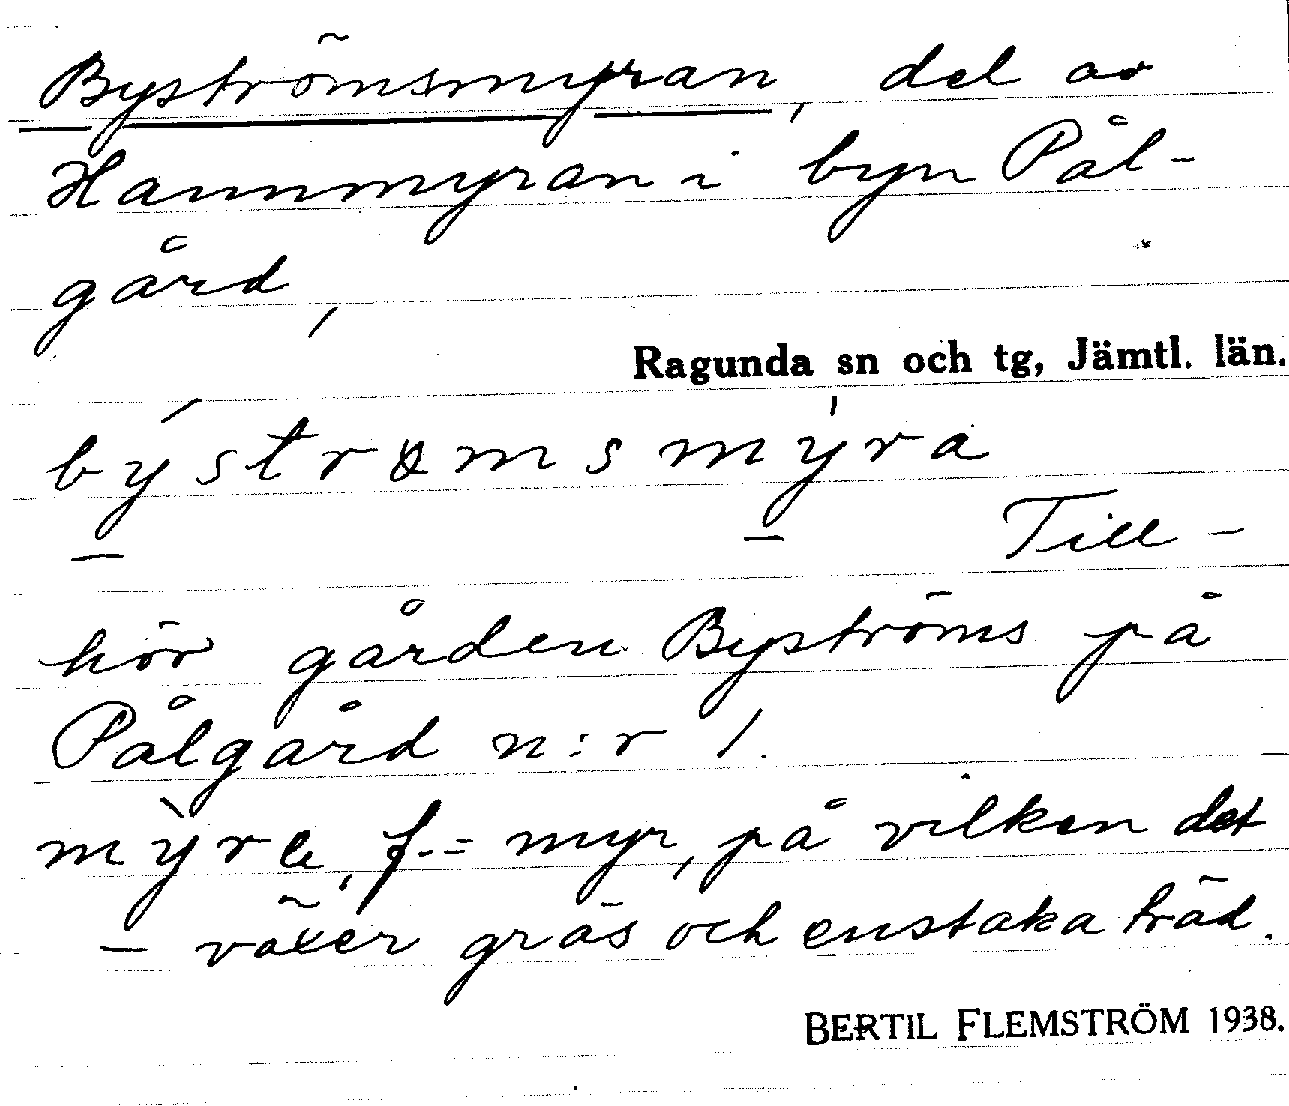 Byströmsmyran, del av
Hammmyran i byn Pål-
gård,
Ragunda sn och tg, Jämtl. län.
býstrømsmy̍ra
Till-
hör gården Byströms på
Pålgård n:r 1.
my̋re, f. = myr, på vilken det
växer gräs och enstaka träd.
BERTIL FLEMSTRÖM 1938.